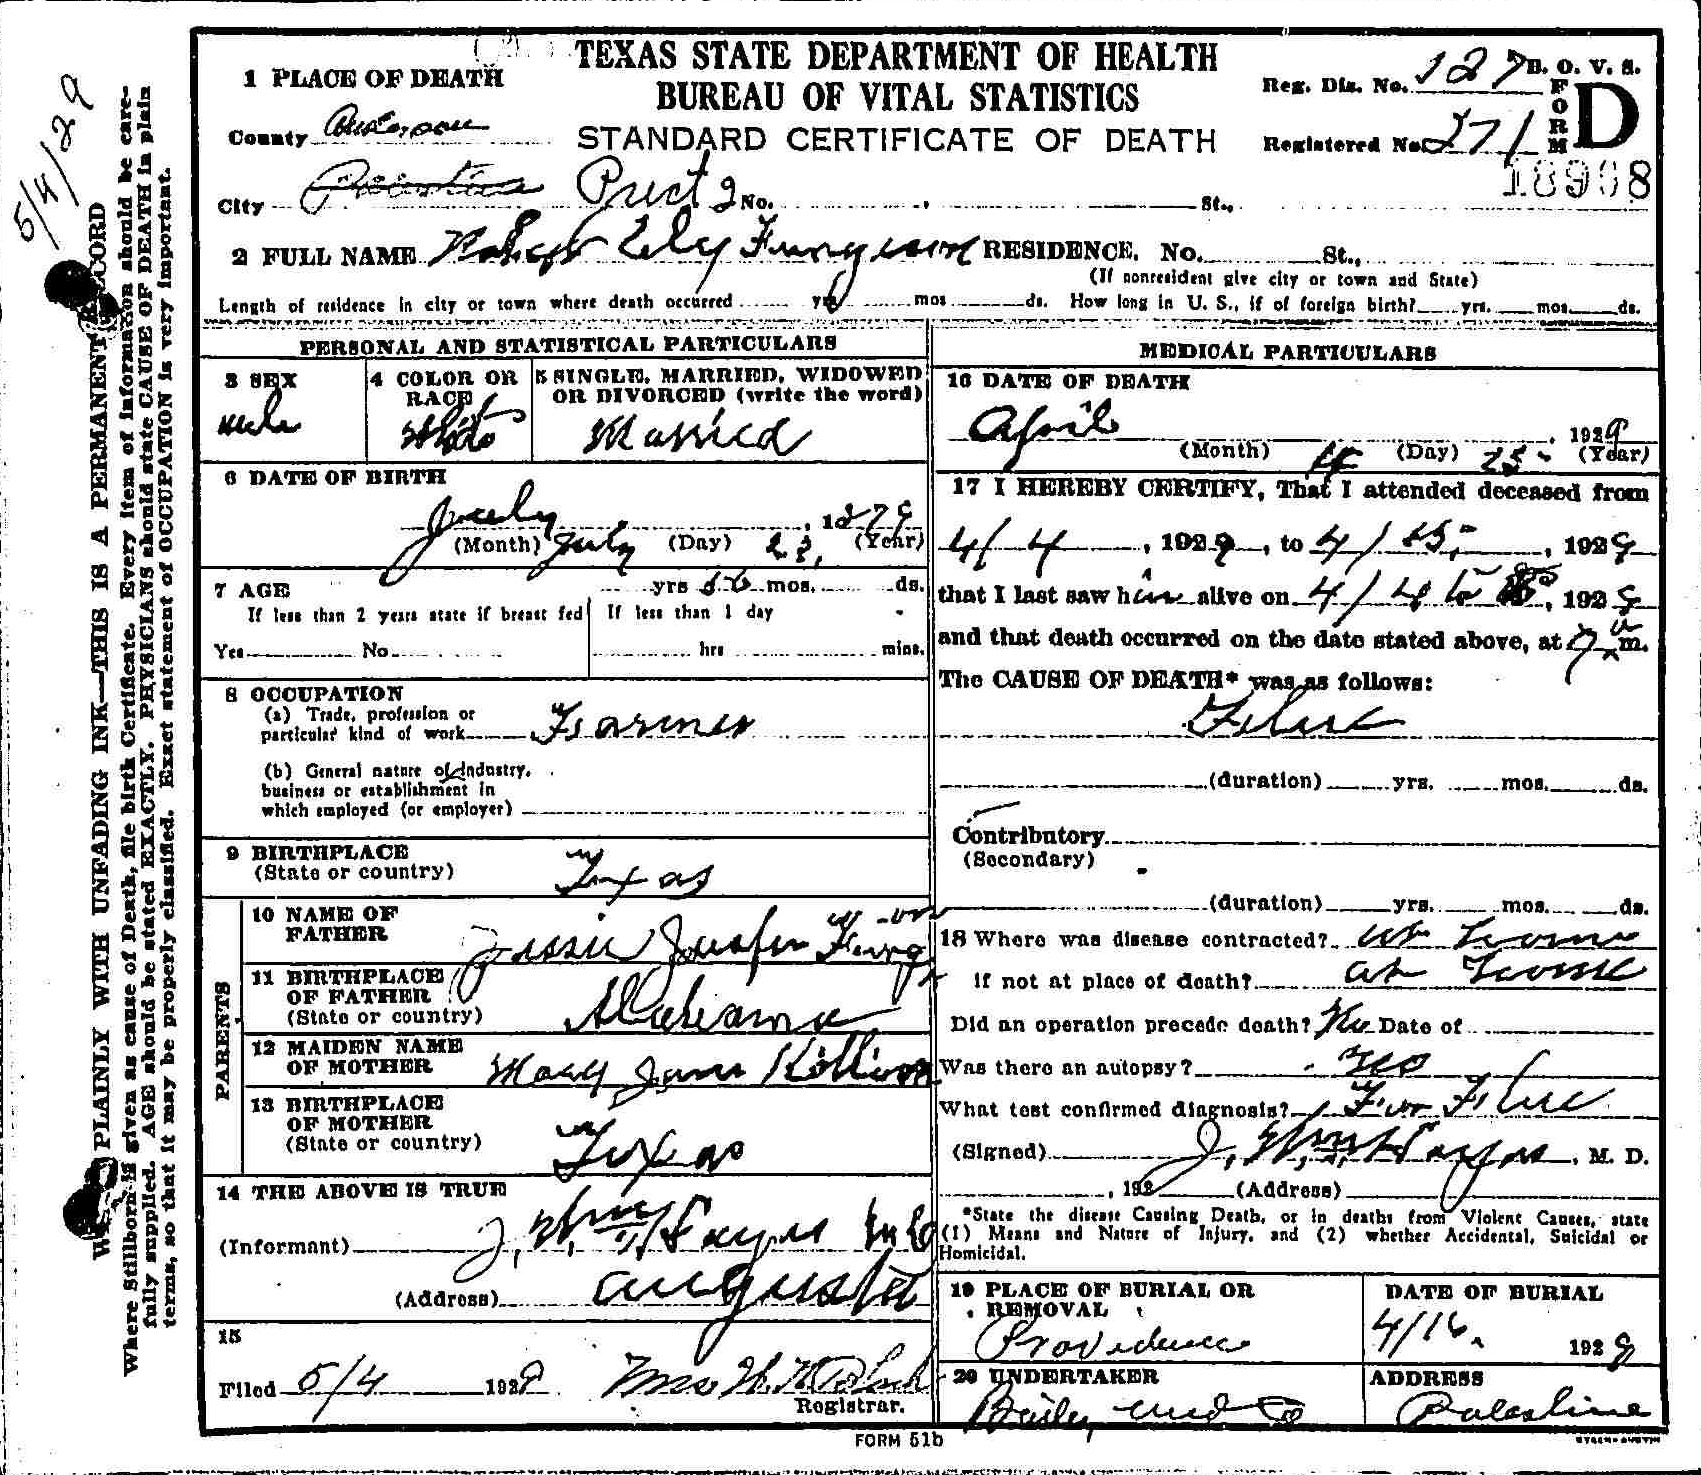 TEXAS STATE DEPARTMENT OF HEALTH
BUREAU OF VITAL STATISTICS
STANDARD CERTIFICATE OF DEATH
Reg. Dis. No. 127
B. O. V. S.
FORM D
Registered No. 271
18908
5/4/29
WRITE PLAINLY WITH UNFADING INK—THIS IS A PERMANENT RECORD
Where Stillborn is given as cause of Death, file birth Certificate. Every item of information should be care-
fully supplied. AGE should be stated EXACTLY. PHYSICIANS should state CAUSE OF DEATH in plain
terms, so that it may be properly classified. Exact statement of OCCUPATION is very important.
1 PLACE OF DEATH
County Anderson
City Palestine Prect 2 No. St.,
2 FULL NAME Ely RESIDENCE. No. St.,
(If nonresident give city or town and State)
Length of residence in city or town where death occurred yrs mos ds. How long in U. S., if of foreign birth? yrs. mos. ds.
PERSONAL AND STATISTICAL PARTICULARS
3 SEX
Male
4 COLOR OR RACE
White
5 SINGLE, MARRIED, WIDOWED
OR DIVORCED (write the word)
Married
6 DATE OF BIRTH
July , 1879
(Month) July (Day) 22, (Year)
7 AGE yrs mos. ds.
If less than 2 years state if breast fed
Yes No
If less than 1 day
hrs mins.
8 OCCUPATION
(a) Trade, profession or
particular kind of work Farmer
(b) General nature of industry,
business or establishment in
which employed (or employer)
9 BIRTHPLACE
(State or country) Texas
PARENTS
10 NAME OF
FATHER
11 BIRTHPLACE
OF FATHER
(State or country) Alabama
12 MAIDEN NAME
OF MOTHER Mary Jane
13 BIRTHPLACE
OF MOTHER
(State or country) Texas
14 THE ABOVE IS TRUE
(Informant) J. M D
(Address) Augusta
15
Filed 5/4 1929 Mrs W. H.
Registrar.
MEDICAL PARTICULARS
16 DATE OF DEATH
April , 1929
(Month) (Day) (Year)
17 I HEREBY CERTIFY, That I attended deceased from
4/4 , 1929 , to 4/15 , 1929
that I last saw him alive on 4/4 to 15, 1929
and that death occurred on the date stated above, at 7 m.
The CAUSE OF DEATH* was as follows:
Flue
(duration) yrs. mos. ds.
Contributory
(Secondary)
(duration) yrs. mos. ds.
18 Where was disease contracted? at Home
If not at place of death? at Home
Did an operation precede death? No Date of
Was there an autopsy? no
What test confirmed diagnosis? For Flue
(Signed) J. , M. D.
, 192 (Address)
*State the disease Causing Death, or in deaths from Violent Causes, state
(1) Means and Nature of Injury, and (2) whether Accidental, Suicidal or
Homicidal.
19 PLACE OF BURIAL OR
REMOVAL
Providence
DATE OF BURIAL
4/16. 1929
20 UNDERTAKER
Bailey
ADDRESS
Palestine
FORM 51b